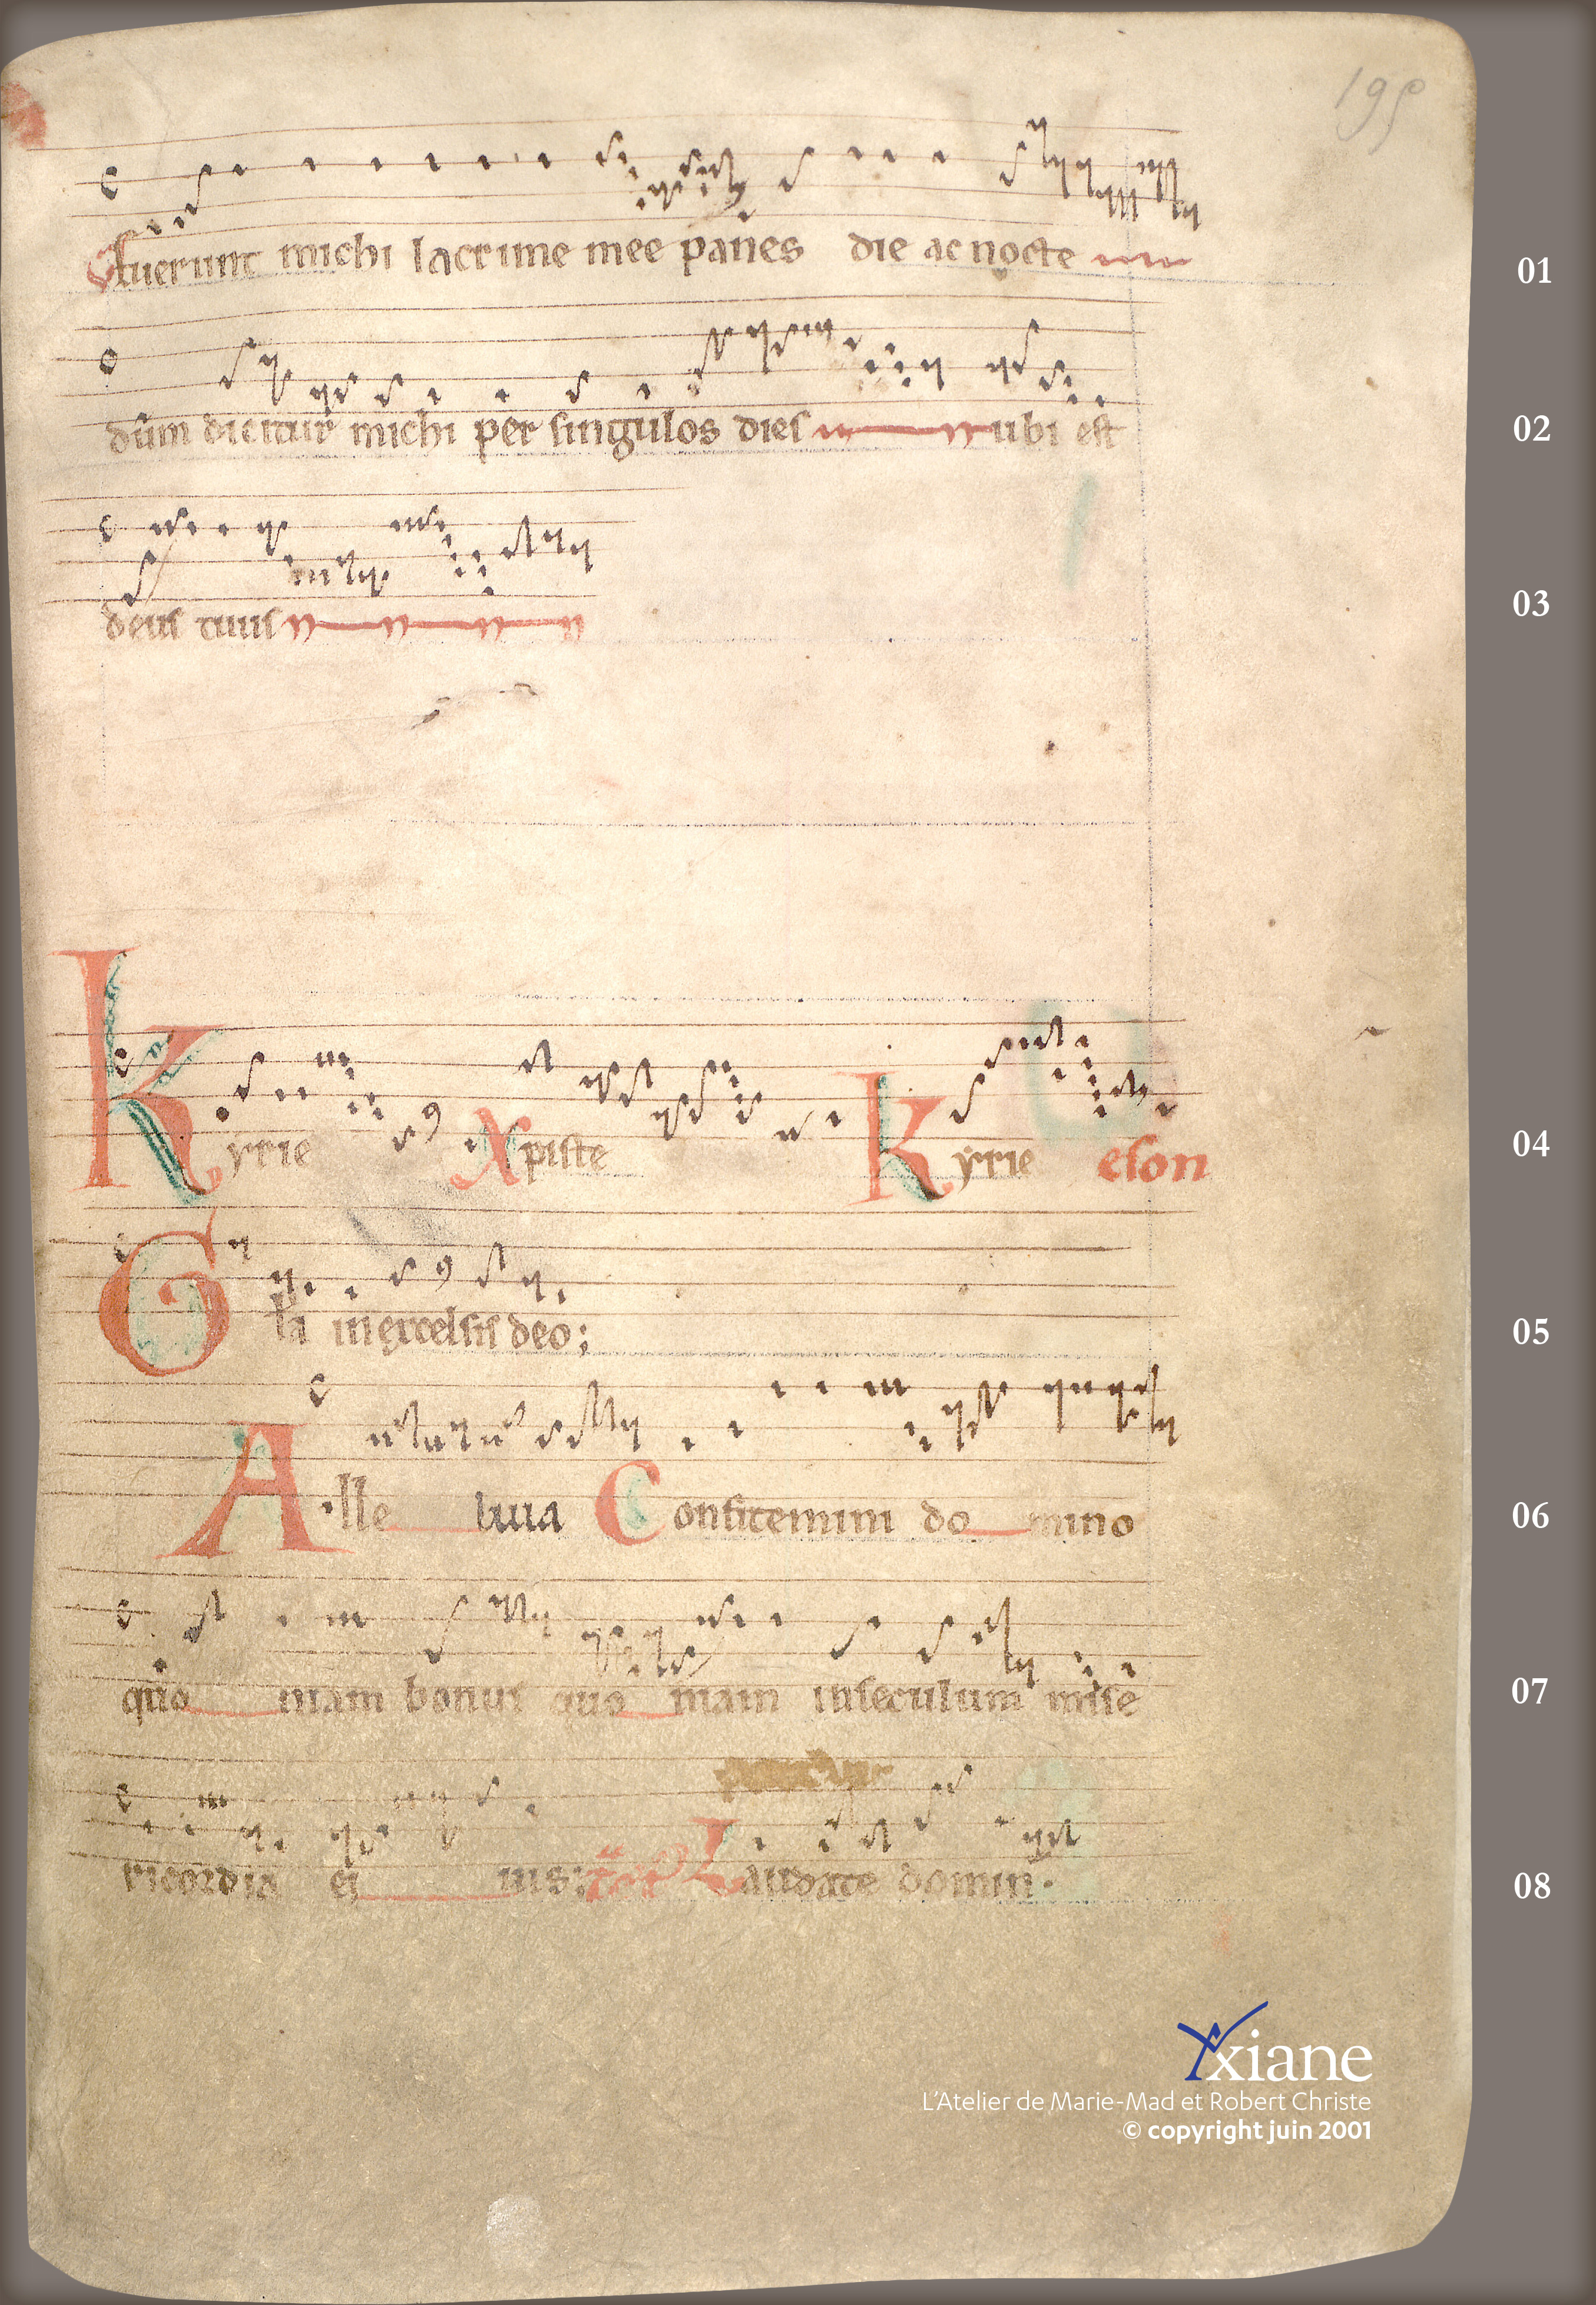 195
Fuerunt michi lacrime mee panes die ac nocte
01
dum dicitur michi per singulos dies ubi est
02
deus tuus
03
Kyrie Xpiste Kyrie eson
04
Gla in excelsis deo;
05
Alleluia Confitemini domino
06
quoniam bonus quoniam in seculum mise
07
ricordia eius: Laudate domin·
08
xiane
L'Atelier de Marie-Mad et Robert Christe
© copyright juin 2001